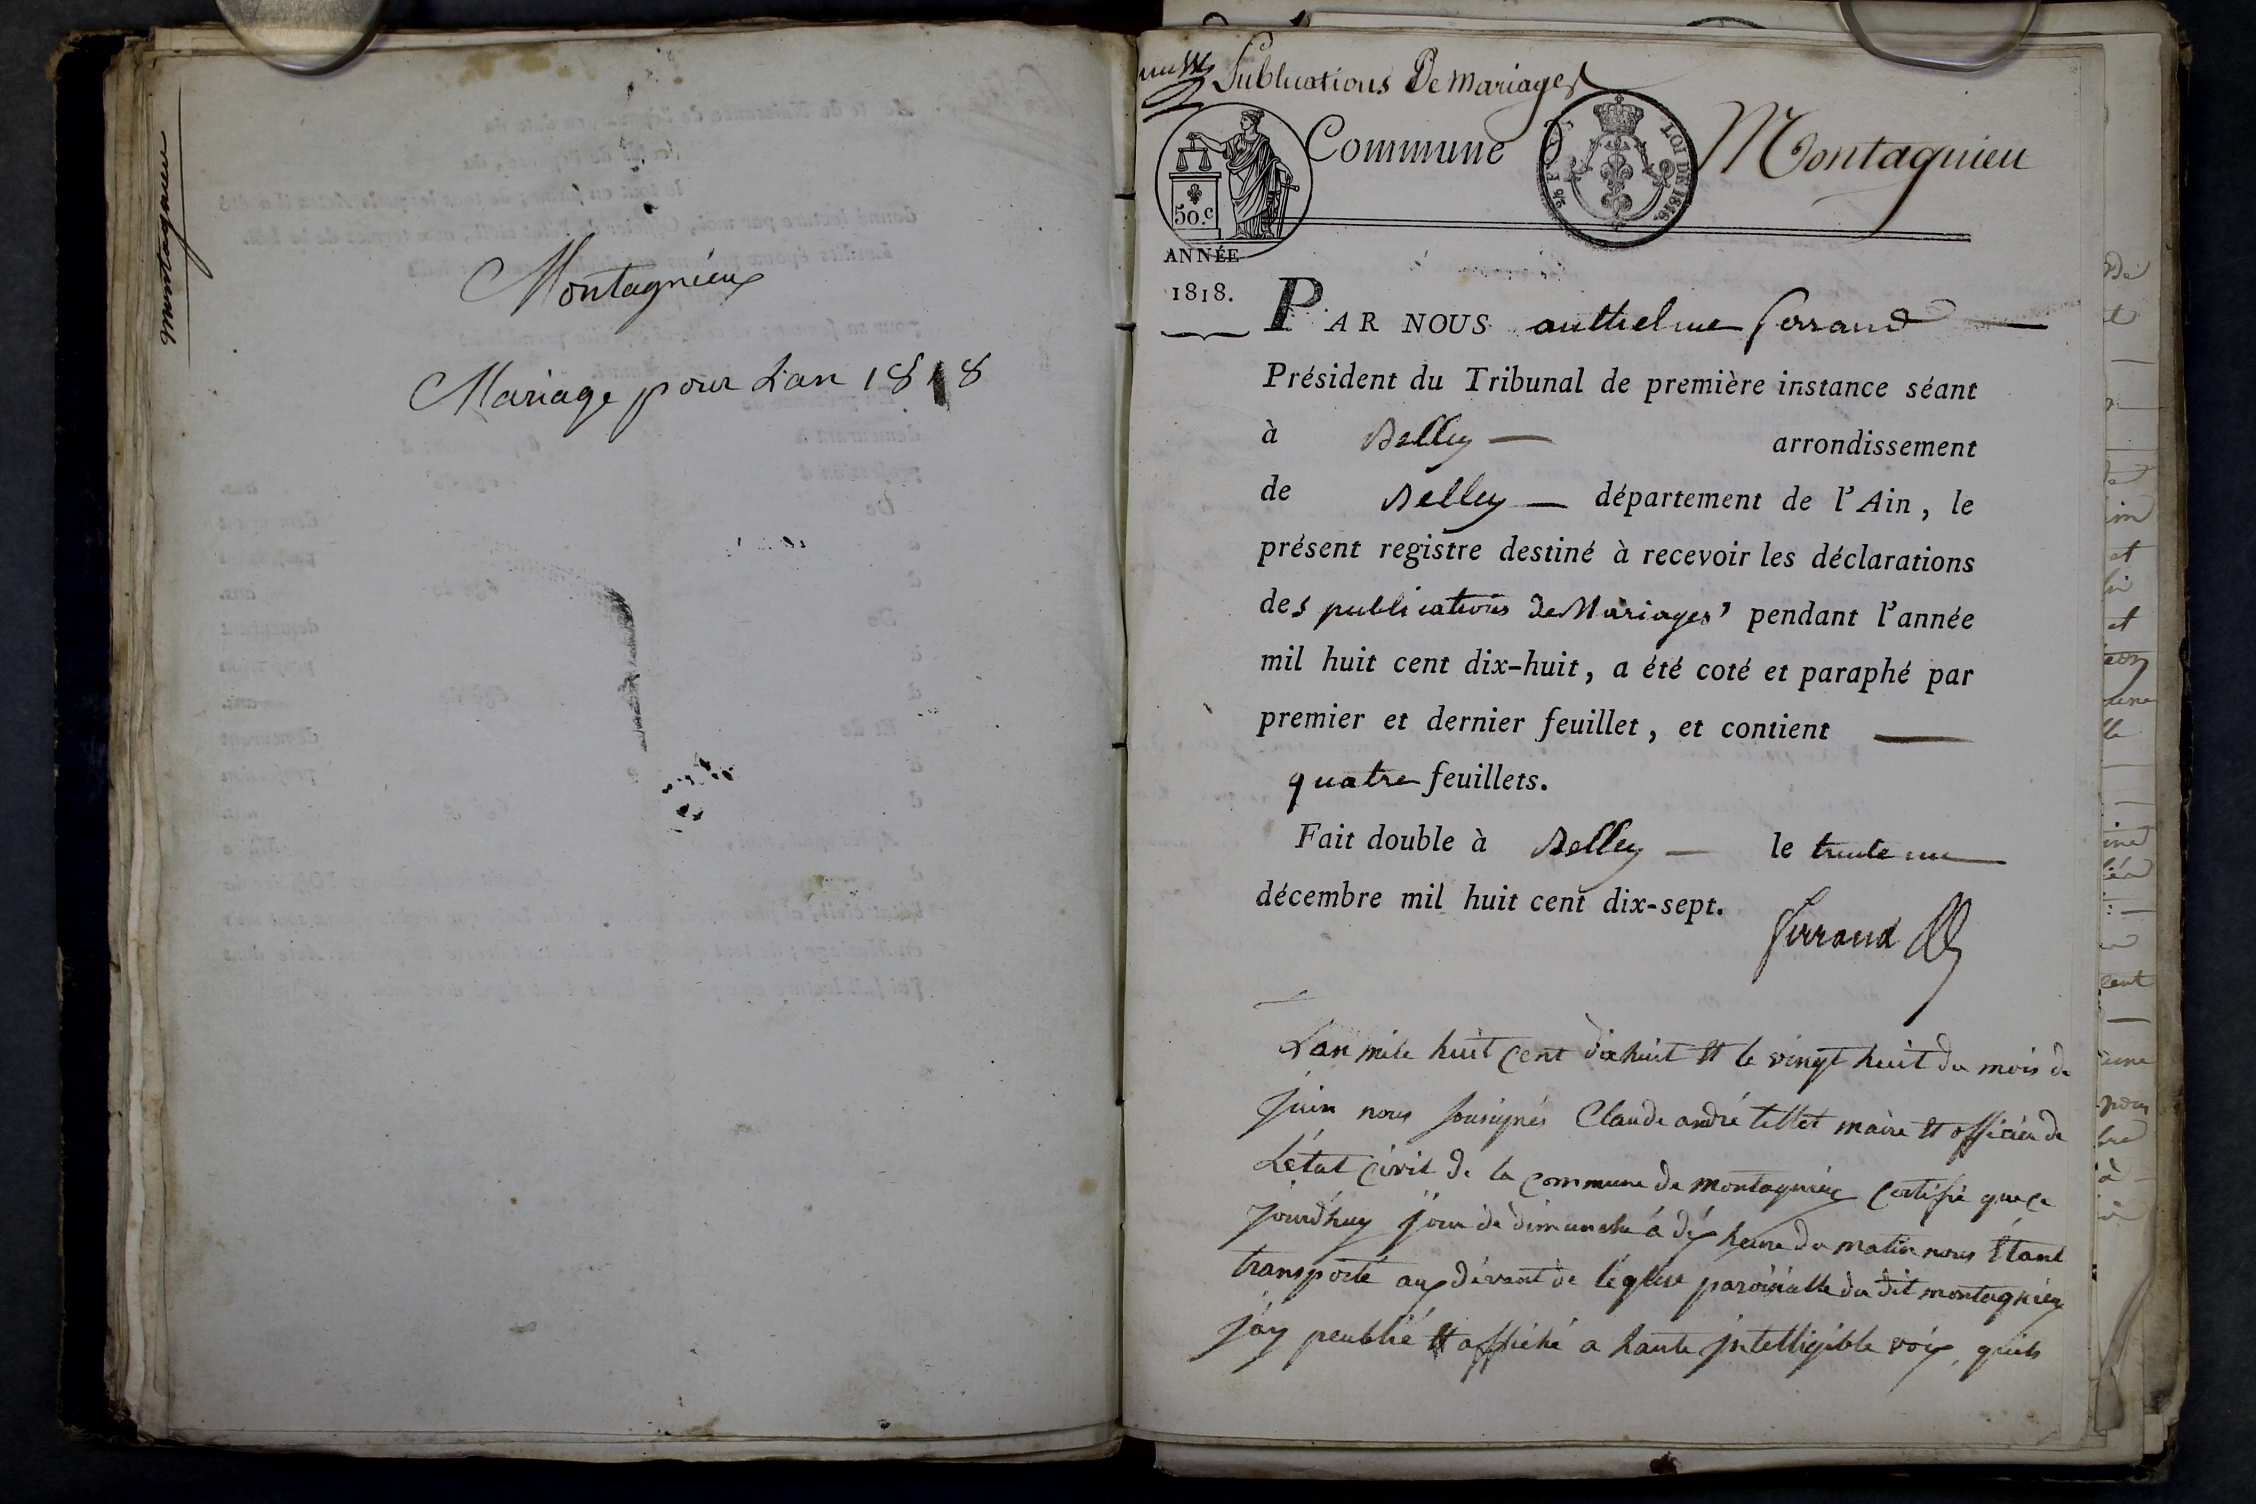 montagnieu
Montagnieux
Mariage pour L'an 1818
Publications De Mariages
Commune D Montagnieu
50.c
LOI DE 1816.
ANNÉE
1818.
PAR NOUS anthelme ferrand
Président du Tribunal de première instance séant
à Belley — arrondissement
de Belley — département de l'Ain, le
présent registre destiné à recevoir les déclarations
des publications de Mariages pendant l'année
mil huit cent dix-huit, a été coté et paraphé par
premier et dernier feuillet, et contient —
quatre feuillets.
Fait double à Belley — le trente un
décembre mil huit cent dix-sept.
ferrand
L'an mile huit cent dixhuit et le vingt huit du mois de
juin nous sousignés Claude andré tettet maire et officier de
L'état civil de la commune de montagnieux certifié que ce
jourd'huy jour de dimanche á dix heure du matin nous étant
transporté aux dévant de léglise paroisialle du dit montagnieux
j'ay peublié et affiché a haute intelligible voix, quils